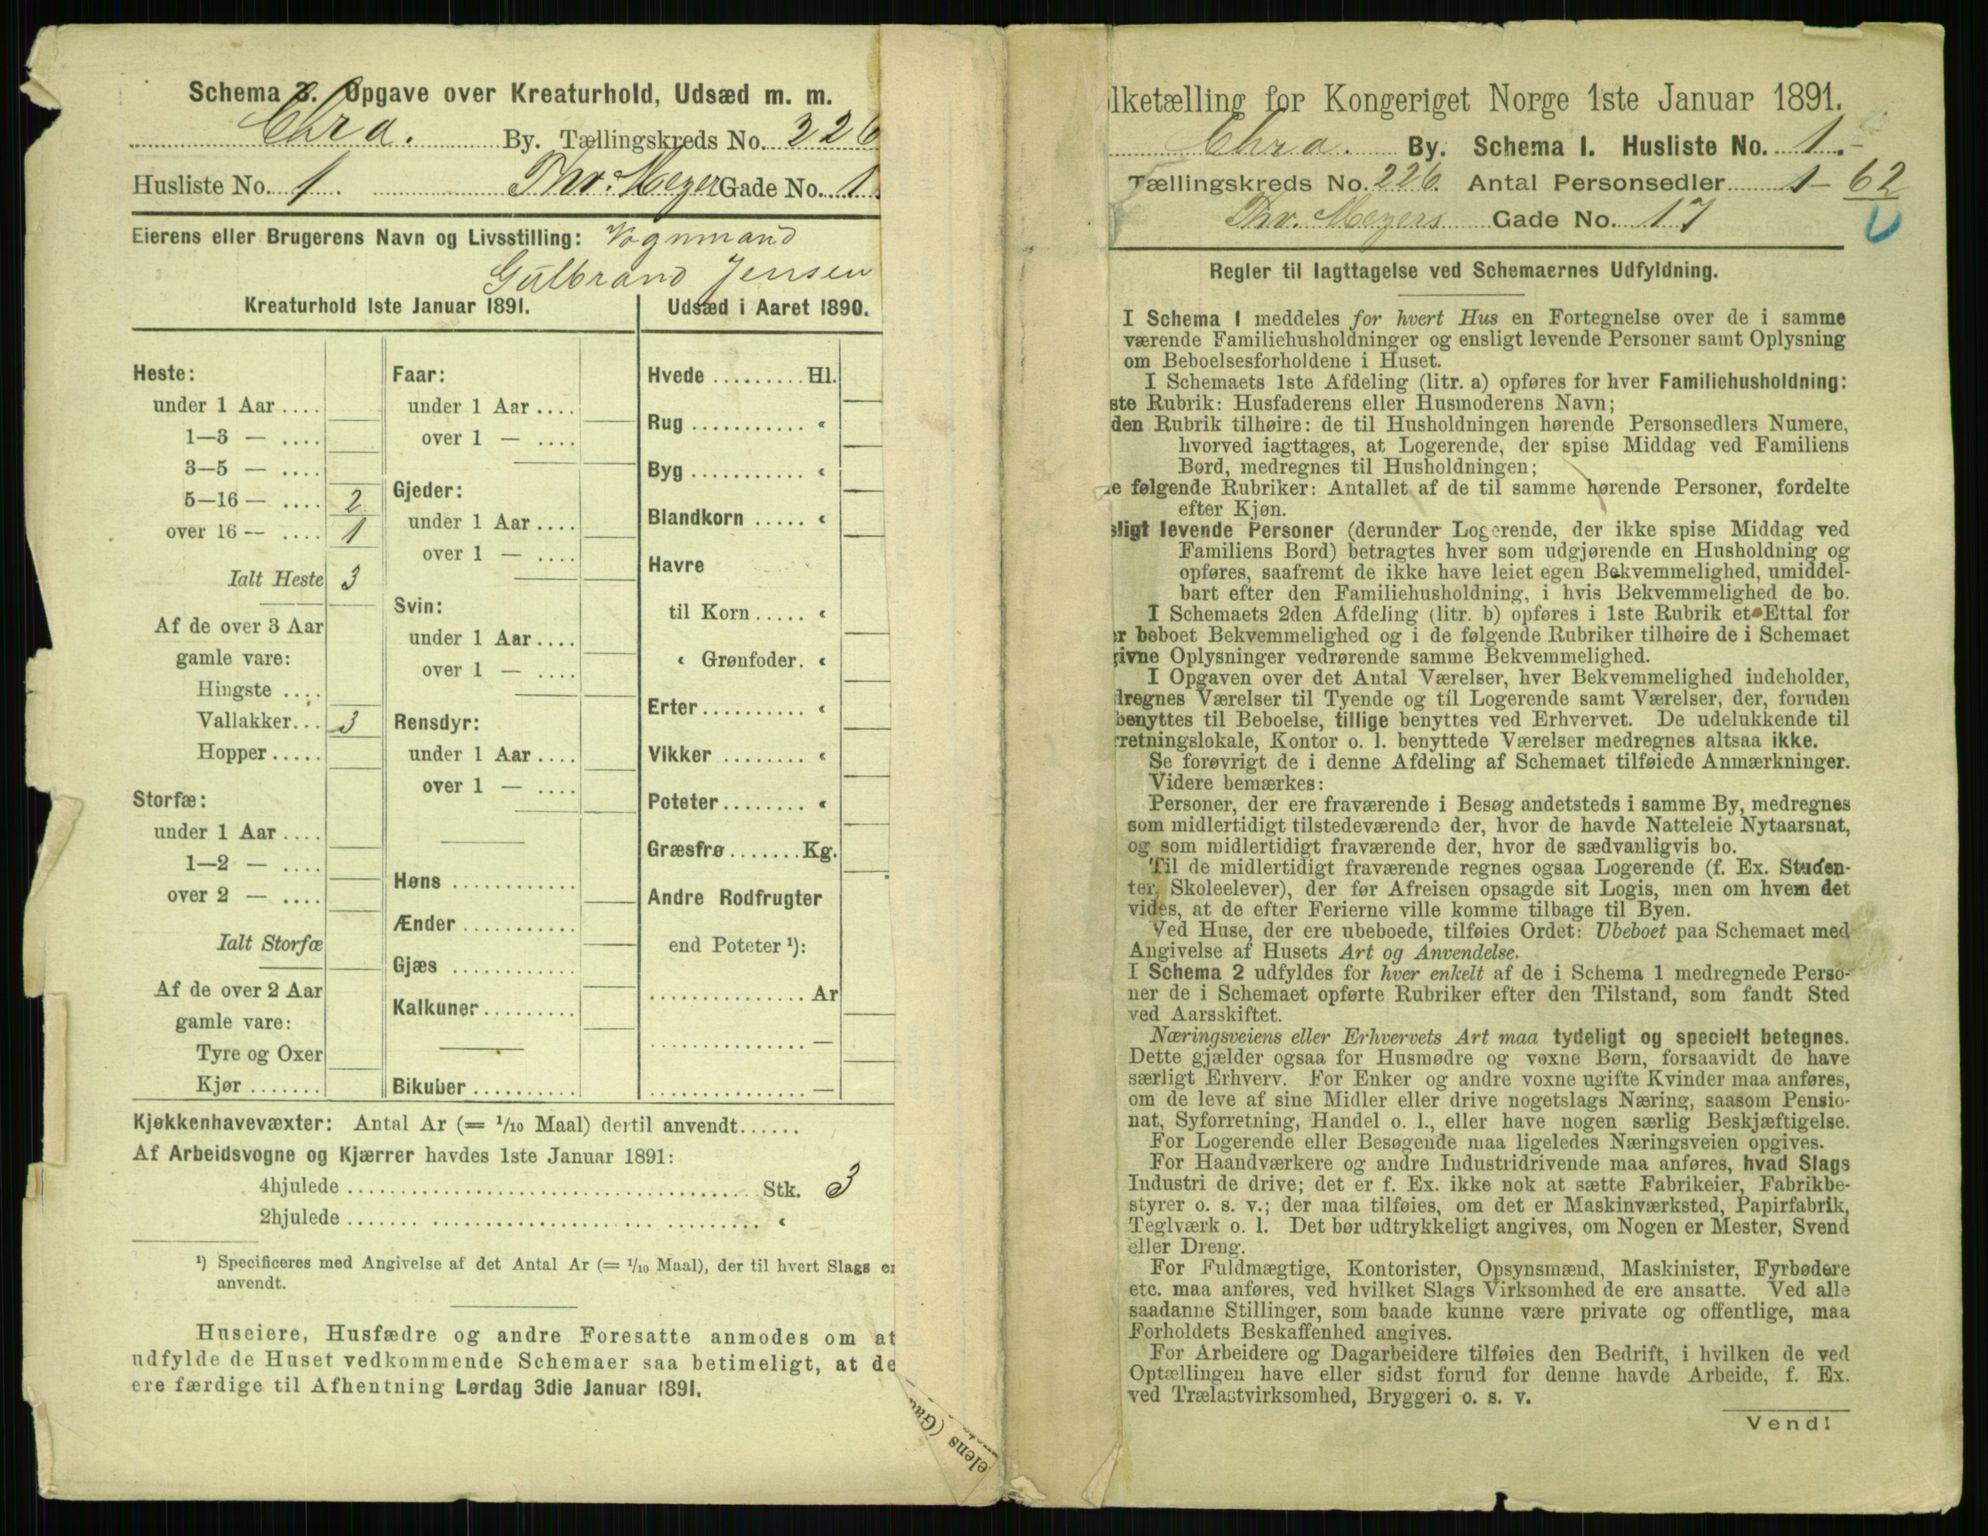 Schema 3. Opgave over Kreaturhold, Udsæd m. m.
Chra. By. Tællingskreds No. 226
Husliste No. 1. Thv. Meyer Gade No. 1
Eierens eller Brugerens Navn og Livsstilling: Vognmand
Gulbrand Jensen
Kreaturhold 1ste Januar 1891.
Heste:
under 1 Aar ....
1—3 — ....
3—5 — ....
5—16 — .... 2
over 16 — .... 1
Ialt Heste 3
Af de over 3 Aar
gamle vare:
Hingste ....
Vallakker... 3
Hopper.....
Storfæ:
under 1 Aar ....
1—2 — ....
over 2 — ....
Ialt Storfæ
Af de over 2 Aar
gamle vare:
Tyre og Oxer
Kjør .......
Faar:
under 1 Aar ....
over 1 — ....
Gjeder:
under 1 Aar ....
over 1 — ....
Svin:
under 1 Aar ....
over 1 — ....
Rensdyr:
under 1 Aar ....
over 1 — ....
Høns ............
Ænder ...........
Gjæs ............
Kalkuner .........
Bikuber ..........
Udsæd i Aaret 1890.
Hvede ......... Hl.
Rug ........... «
Byg ........... «
Blandkorn ..... «
Havre
til Korn ..... «
« Grønfoder. «
Erter .......... «
Vikker ........ «
Poteter ........ «
Græsfrø ....... Kg.
Andre Rodfrugter
end Poteter ¹):
............... Ar
............... —
............... —
Kjøkkenhavevæxter: Antal Ar (= 1/10 Maal) dertil anvendt......
Af Arbeidsvogne og Kjærrer havdes 1ste Januar 1891:
4hjulede ........................................ Stk. 3
2hjulede ........................................ «
¹) Specificeres med Angivelse af det Antal Ar (= 1/10 Maal), der til hvert Slags er
anvendt.
Huseiere, Husfædre og andre Foresatte anmodes om at
udfylde de Huset vedkommende Schemaer saa betimeligt, at de
ere færdige til Afhentning Lørdag 3die Januar 1891.
elens (Ga
lketælling for Kongeriget Norge 1ste Januar 1891.
Chra. By. Schema I. Husliste No. 1.-
Tællingskreds No. 226. Antal Personsedler 1-62
Thv. Meyers Gade No. 17
Regler til Iagttagelse ved Schemaernes Udfyldning.
I Schema 1 meddeles for hvert Hus en Fortegnelse over de i samme
værende Familiehusholdninger og ensligt levende Personer samt Oplysning
om Beboelsesforholdene i Huset.
I Schemaets 1ste Afdeling (litr. a) opføres for hver Familiehusholdning:
ste Rubrik: Husfaderens eller Husmoderens Navn;
den Rubrik tilhøire: de til Husholdningen hørende Personsedlers Numere,
hvorved iagttages, at Logerende, der spise Middag ved Familiens
Bord, medregnes til Husholdningen;
e følgende Rubriker: Antallet af de til samme hørende Personer, fordelte
efter Kjøn.
sligt levende Personer (derunder Logerende, der ikke spise Middag ved
Familiens Bord) betragtes hver som udgjørende en Husholdning og
opføres, saafremt de ikke have leiet egen Bekvemmelighed, umiddel-
bart efter den Familiehusholdning, i hvis Bekvemmelighed de bo.
I Schemaets 2den Afdeling (litr. b) opføres i 1ste Rubrik et Ettal for
r beboet Bekvemmelighed og i de følgende Rubriker tilhøire de i Schemaet
givne Oplysninger vedrørende samme Bekvemmelighed.
I Opgaven over det Antal Værelser, hver Bekvemmelighed indeholder,
dregnes Værelser til Tyende og til Logerende samt Værelser, der, foruden
benyttes til Beboelse, tillige benyttes ved Erhvervet. De udelukkende til
rretningslokale, Kontor o. l. benyttede Værelser medregnes altsaa ikke.
Se forøvrigt de i denne Afdeling af Schemaet tilføiede Anmærkninger.
Videre bemærkes:
Personer, der ere fraværende i Besøg andetsteds i samme By, medregnes
som midlertidigt tilstedeværende der, hvor de havde Natteleie Nytaarsnat,
og som midlertidigt fraværende der, hvor de sædvanligvis bo.
Til de midlertidigt fraværende regnes ogsaa Logerende (f. Ex. Studen-
ter, Skoleelever), der før Afreisen opsagde sit Logis, men om hvem det
vides, at de efter Ferierne ville komme tilbage til Byen.
Ved Huse, der ere ubeboede, tilføies Ordet: Ubeboet paa Schemaet med
Angivelse af Husets Art og Anvendelse.
I Schema 2 udfyldes for hver enkelt af de i Schema 1 medregnede Perso-
ner de i Schemaet opførte Rubriker efter den Tilstand, som fandt Sted
ved Aarsskiftet.
Næringsveiens eller Erhvervets Art maa tydeligt og specielt betegnes.
Dette gjælder ogsaa for Husmødre og voxne Børn, forsaavidt de have
særligt Erhverv. For Enker og andre voxne ugifte Kvinder maa anføres,
om de leve af sine Midler eller drive nogetslags Næring, saasom Pensio-
nat, Syforretning, Handel o. l., eller have nogen særlig Beskjæftigelse.
For Logerende eller Besøgende maa ligeledes Næringsveien opgives.
For Haandværkere og andre Industridrivende maa anføres, hvad Slags
Industri de drive; det er f. Ex. ikke nok at sætte Fabrikeier, Fabrikbe-
styrer o. s. v.; der maa tilføies, om det er Maskinværksted, Papirfabrik,
Teglværk o. l. Det bør udtrykkeligt angives, om Nogen er Mester, Svend
eller Dreng.
For Fuldmægtige, Kontorister, Opsynsmænd, Maskinister, Fyrbødere
etc. maa anføres, ved hvilket Slags Virksomhed de ere ansatte. Ved alle
saadanne Stillinger, som baade kunne være private og offentlige, maa
Forholdets Beskaffenhed angives.
For Arbeidere og Dagarbeidere tilføies den Bedrift, i hvilken de ved
Optællingen have eller sidst forud for denne havde Arbeide, f. Ex.
ved Trælastvirksomhed, Bryggeri o. s. v.
Vend!